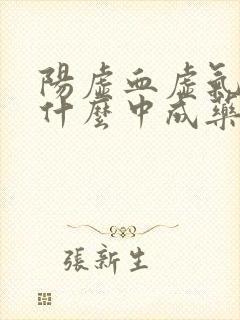 陽虛血虛氣
什麼中成藥
張新生